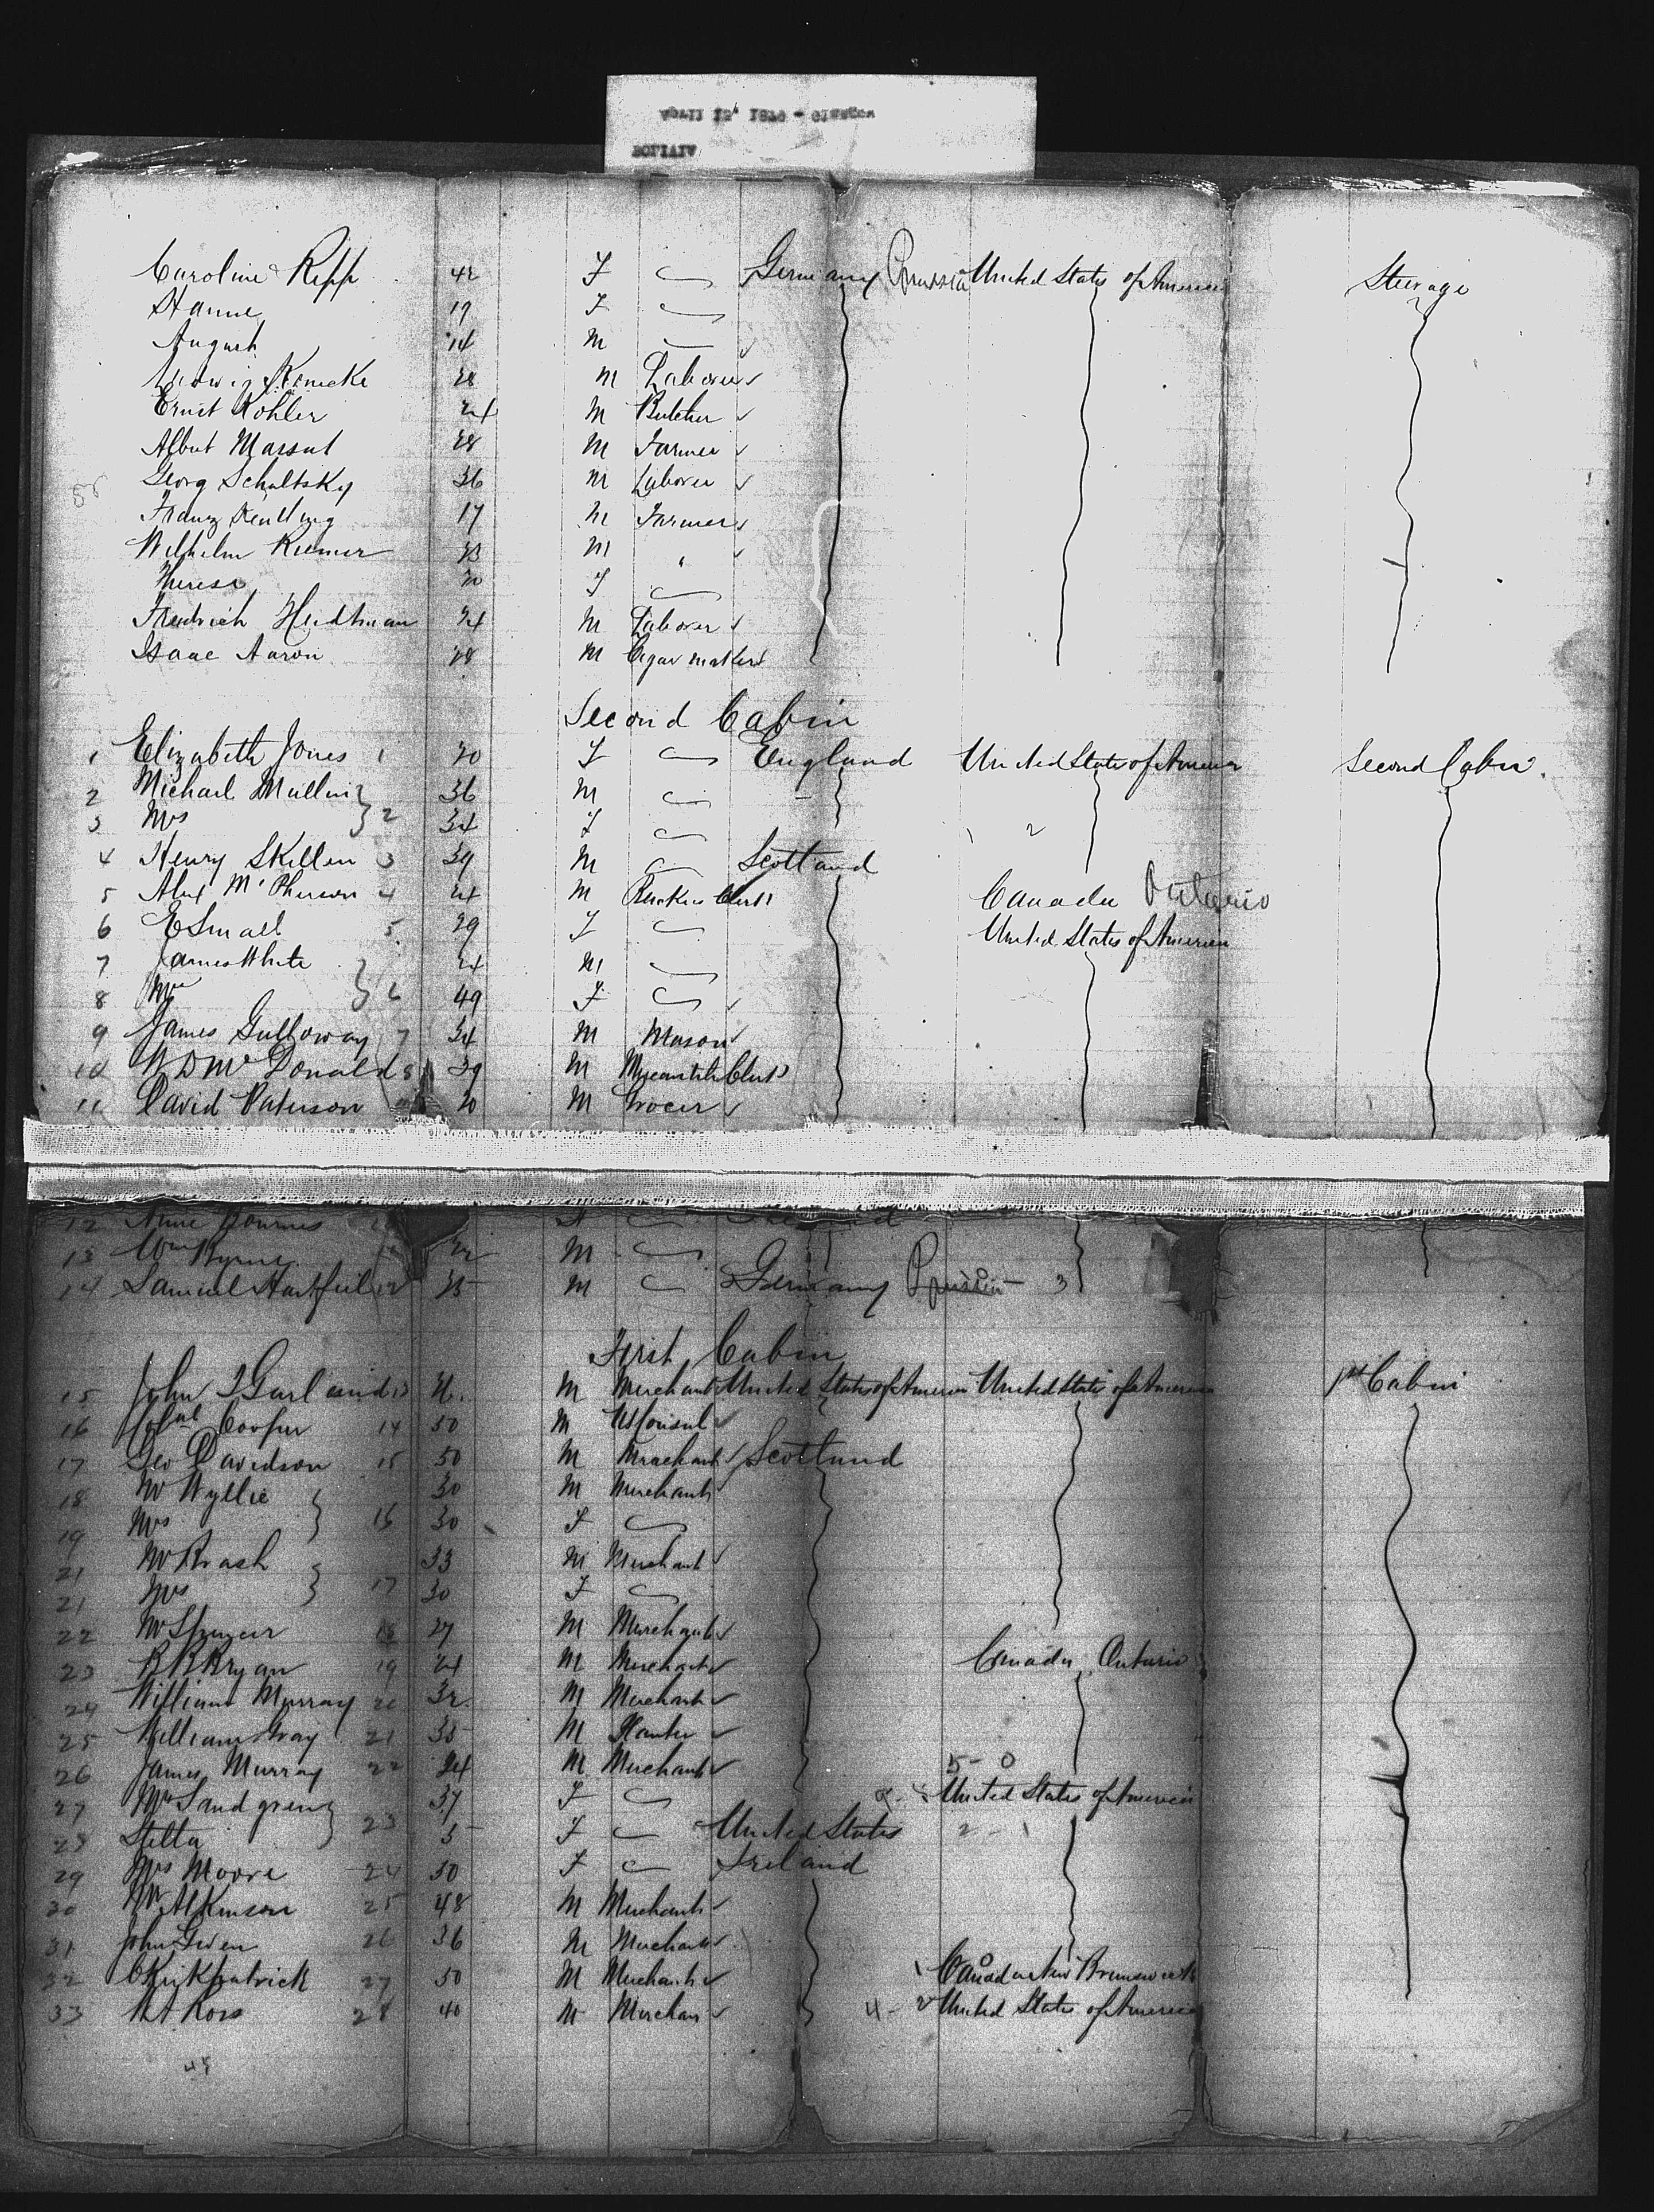 Caroline Ripp 42 F Germany Prussia United States of America Steerage
Hanne 19 F
August 14 M
Ludwig Reinecke 28 M Laborer
Ernst Kohler 24 M Butcher
Albert Massat 28 M Farmer
Georg Schaltsky 36 M Laborer
Franz 17 M Farmer
Wilhelm Riemer 23 M "
Therese 20 F
Fredrich Heidtman 24 M Laborer
Isaac Aaron 28 M Cigar maker
Second Cabin
1 Elizabeth Jones 1 20 F England United States of America Second Cabin
2 Michael Mullin 36 M
3 Mrs 2 34 F
4 Henry Skillen 3 39 M Scotland
5 Alex McPherson 4 24 M Clerk Canada Ontario
6 E Small 5 29 F United States of America
7 James White 24 M
8 Mrs 6 49 F
9 James Galloway 7 34 M Mason
10 W D McDonald 8 39 M Mercantile Clerk
11 David Paterson 20 M Grocer
12 Anne Ireland
13 Wm Byrne 22 M
14 Samuel Hartfiel 12 25 M Germany Prussia 3
First Cabin
15 John Garland 13 M Merchant United States of America United States of America 1st Cabin
16 Cooper 14 50 M US Consul
17 Geo Davidson 15 50 M Merchant Scotland
18 Mr Wyllie 30 M Merchant
19 Mrs 16 30 F
21 Mr Brash 33 M Merchant
21 Mrs 17 30 F
22 Mr Spencer 18 27 M Merchant
23 R B Bryan 19 24 M Merchant Canada, Ontario
24 William Murray 20 32 M Merchant
25 William Gray 21 35 M Planter
26 James Murray 22 24 M Merchant 5 - 0
27 Mrs Sandgren 37 F United States of America
28 Stella 23 5 F United States 2 - 1
29 Mrs Moore 24 50 F Ireland
30 Mr Atkinson 25 48 M Merchant
31 John Given 26 36 M Merchant
32 C Kirkpatrick 27 50 M Merchant Canada New Brunswick
33 Ross 28 40 M Merchant 4 - 2 United States of America
45